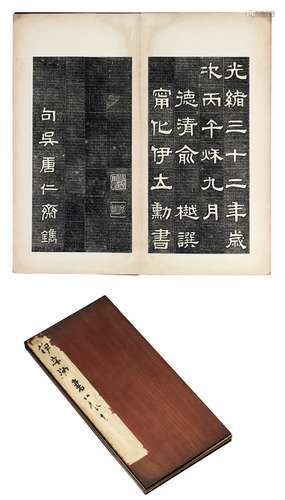 光緒三十二年歲
次丙午秌九月
德清俞樾譔
甯化伊立勳書
句吳唐仁齋鐫